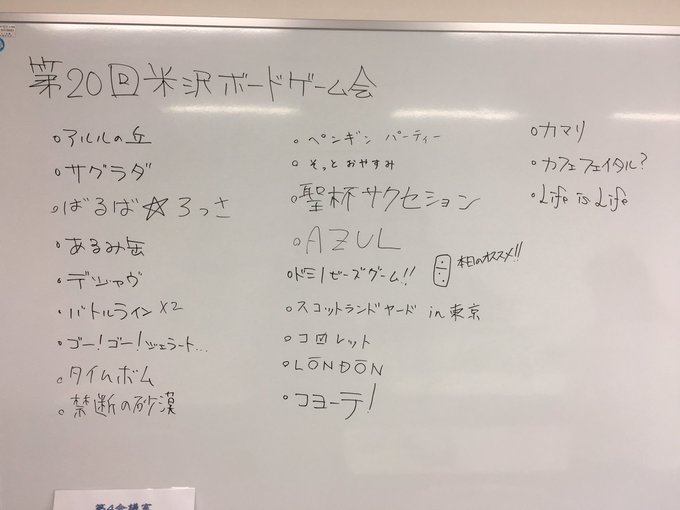 第20回米沢ボードゲーム会
。アルルの丘
。サグラダ
。ばるば☆ろっさ
。あるみ缶
。デジャヴ
。バトルライン×2
。ゴー！ゴー！ジェラート...
。タイムボム
。禁断の砂漠
。ペンギンパーティー
。そっとおやすみ
。聖杯サクセション
。AZUL
。ドミノゼーズゲーム!!
本日のオススメ!!
。スコットランドヤード in 東京
。コロレット
。LŌNDŌN
。コヨーテ！
。カマリ
。カフェフェイタル？
。Life is Life
第4会議室